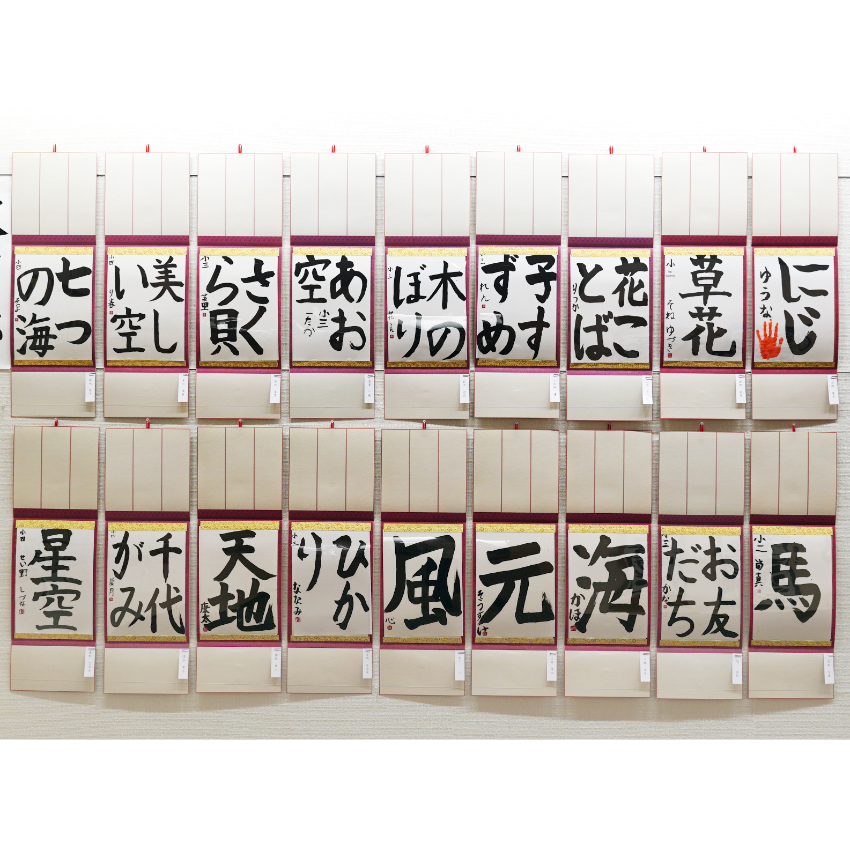 にじ
ゆうな
草花
小二
そね ゆづき
花こ
とば
りつか
子す
ずめ
れん
木の
ぼり
あお
空
小三
さく
ら貝
小三
美し
い空
小四
七つ
の海
小四
馬
小二
お友
だち
小三
かな
海
かほ
元
風
心
ひか
り
ななみ
天地
千代
がみ
星空
小四